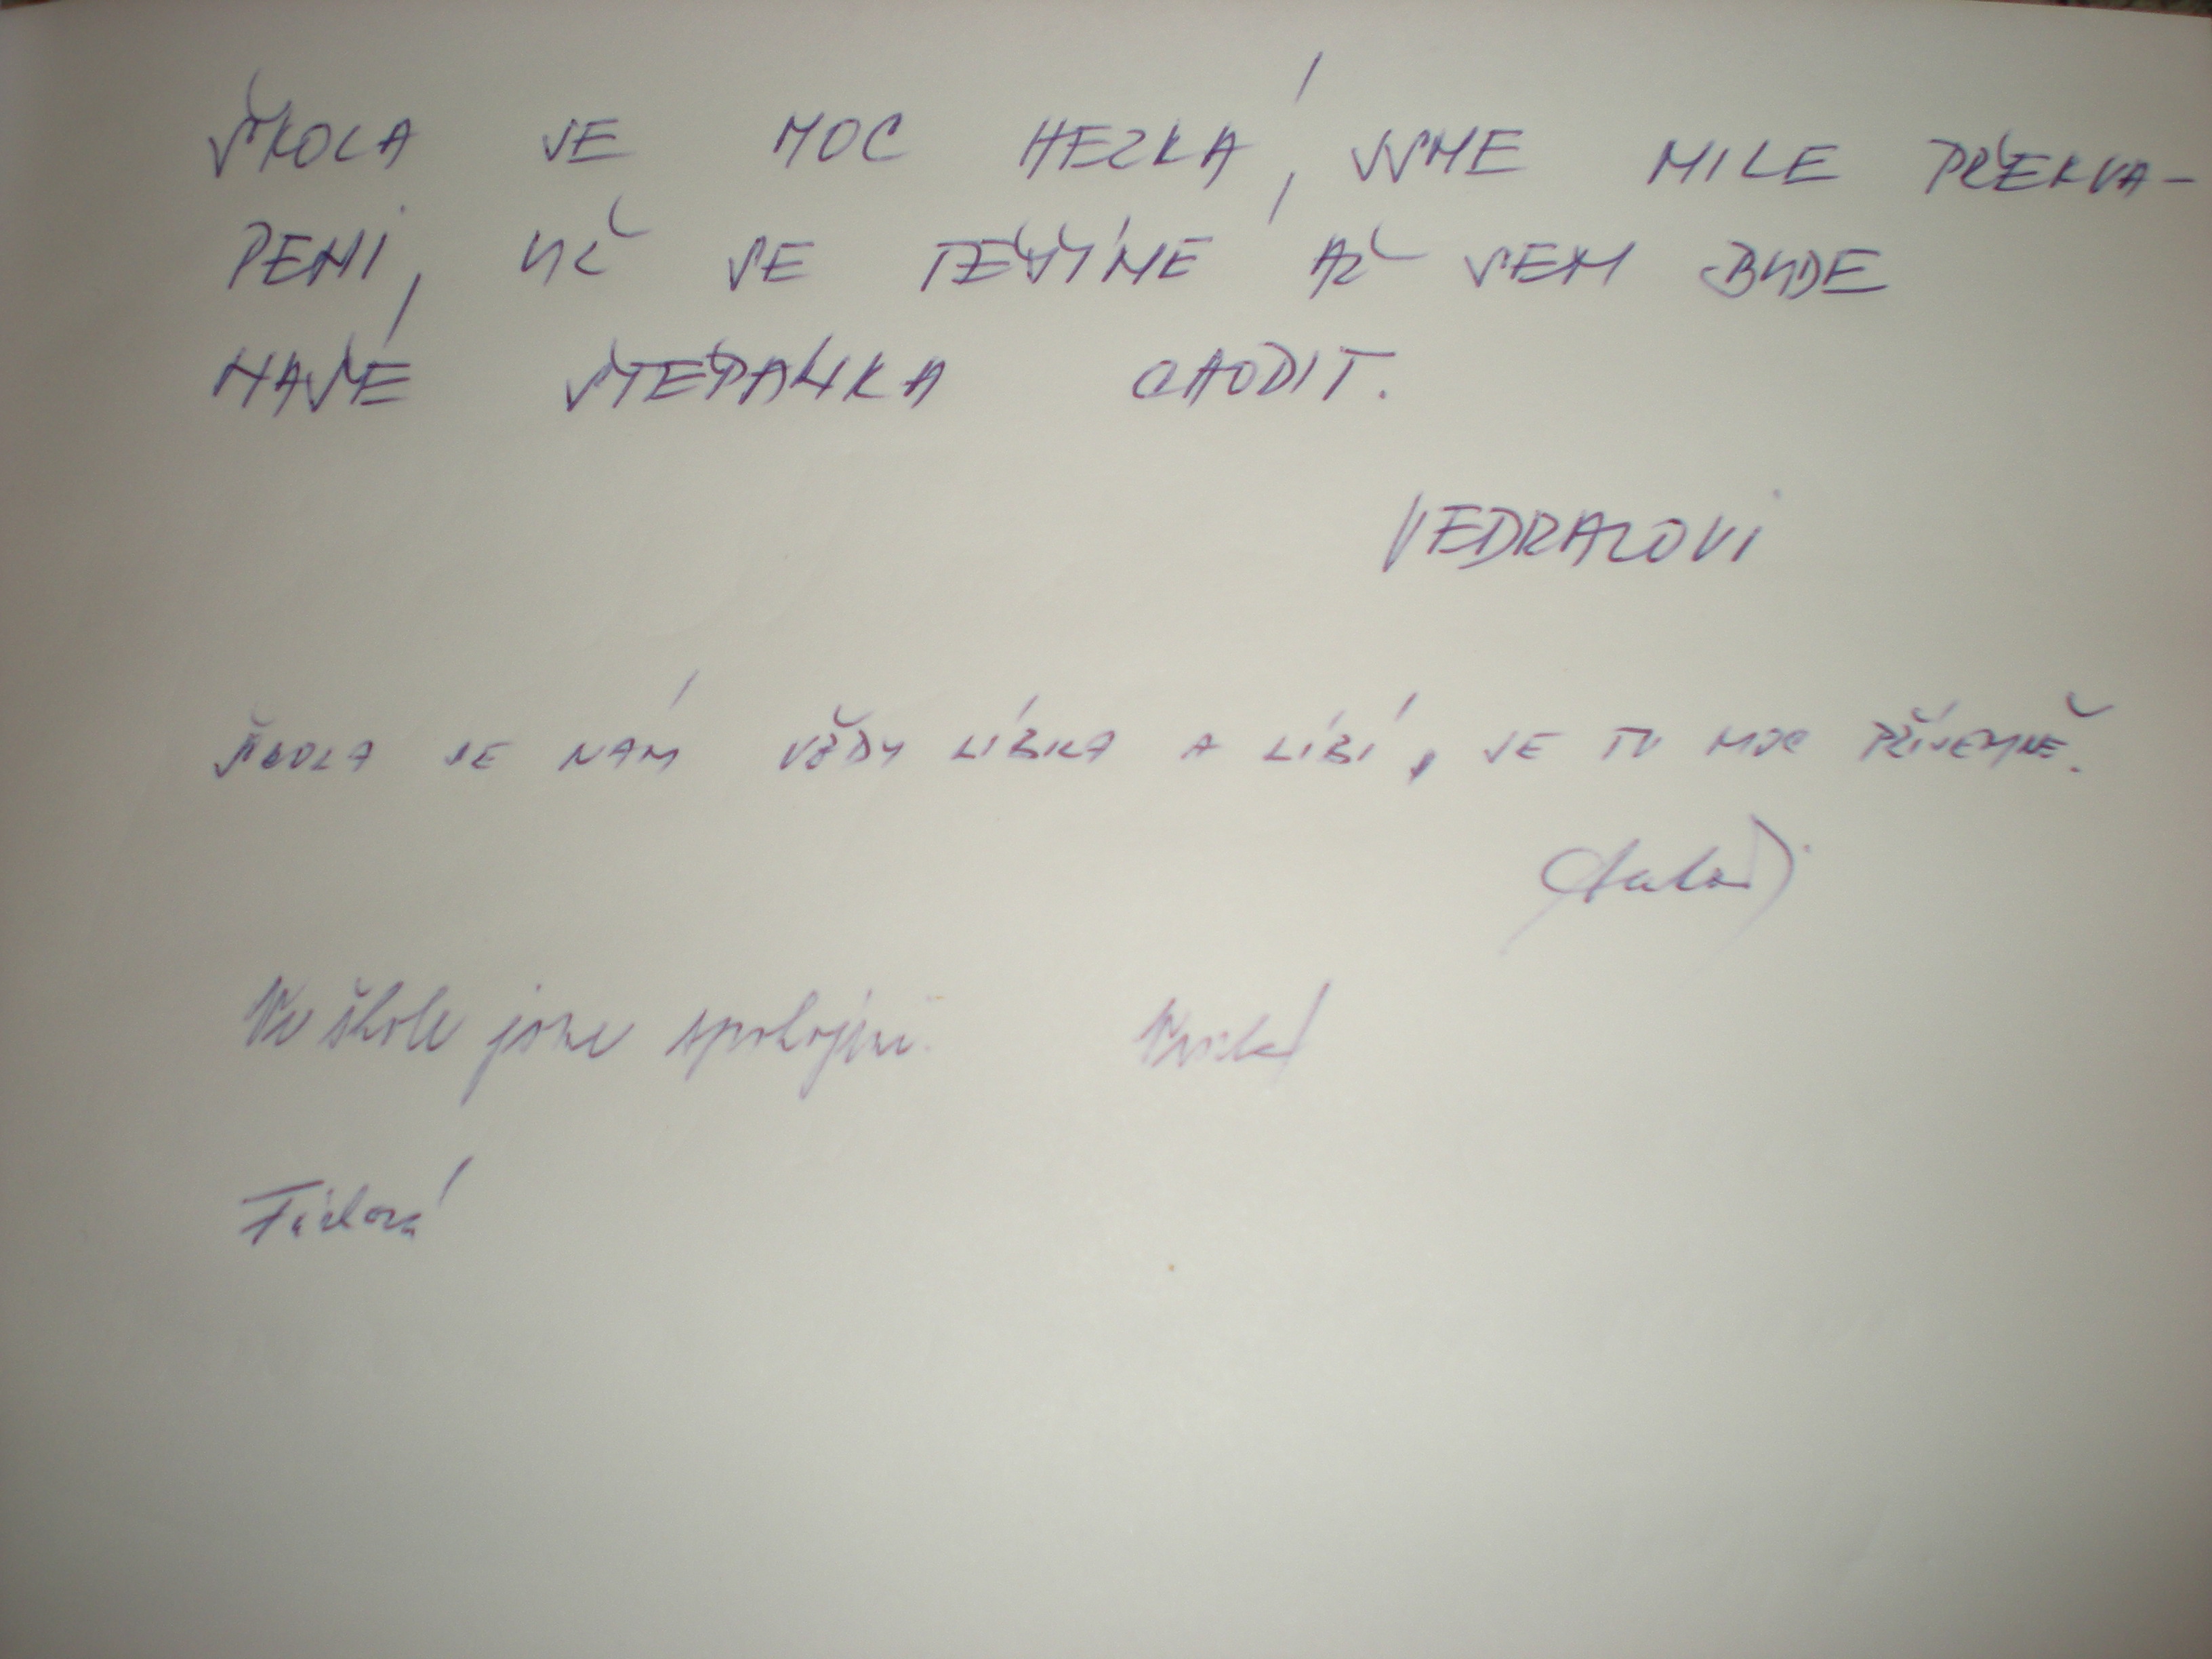 ŠKOLA JE MOC HEZKÁ, JSME MILE PŘEKVA-
PENI, UŽ SE TĚŠÍME AŽ SEM BUDE
NAŠE ŠTĚPÁNKA CHODIT.
VEDRALOVI
ŠKOLA SE NÁM VŽDY LÍBILA A LÍBÍ, JE TU MOC PŘÍJEMNĚ.
Ve škole jsme spokojeni.